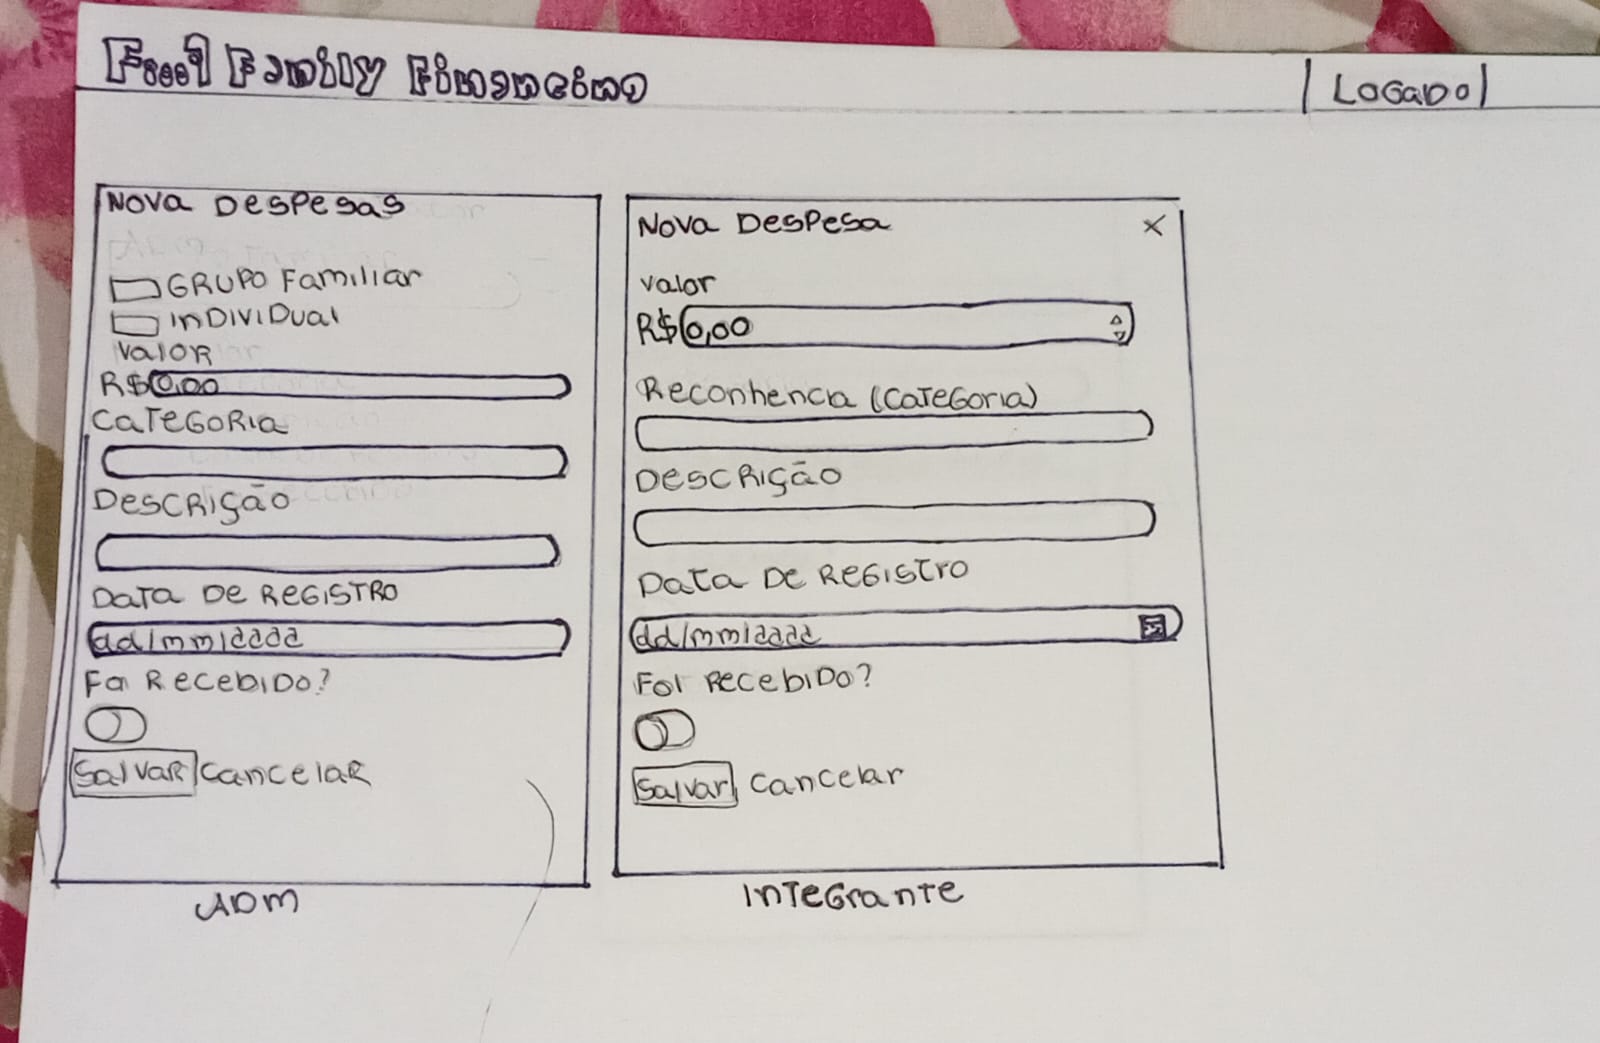 Family Financeino
LOGADO
NOVA DESPESAS
GRUPO Familiar
INDIVIDUAL
VALOR
R$ 0,00
CATEGORIA
DESCRIÇÃO
DATA DE REGISTRO
dd/mm/aaaa
Foi RECEBIDO?
SALVAR CANCELAR
ADM
NOVA DESPESA X
valor
R$ 0,00
Reconhencia (CATEGORIA)
DESCRIÇÃO
DATA DE REGISTRO
dd/mm/aaaa
FOI RECEBIDO?
Salvar Cancelar
INTEGRANTE